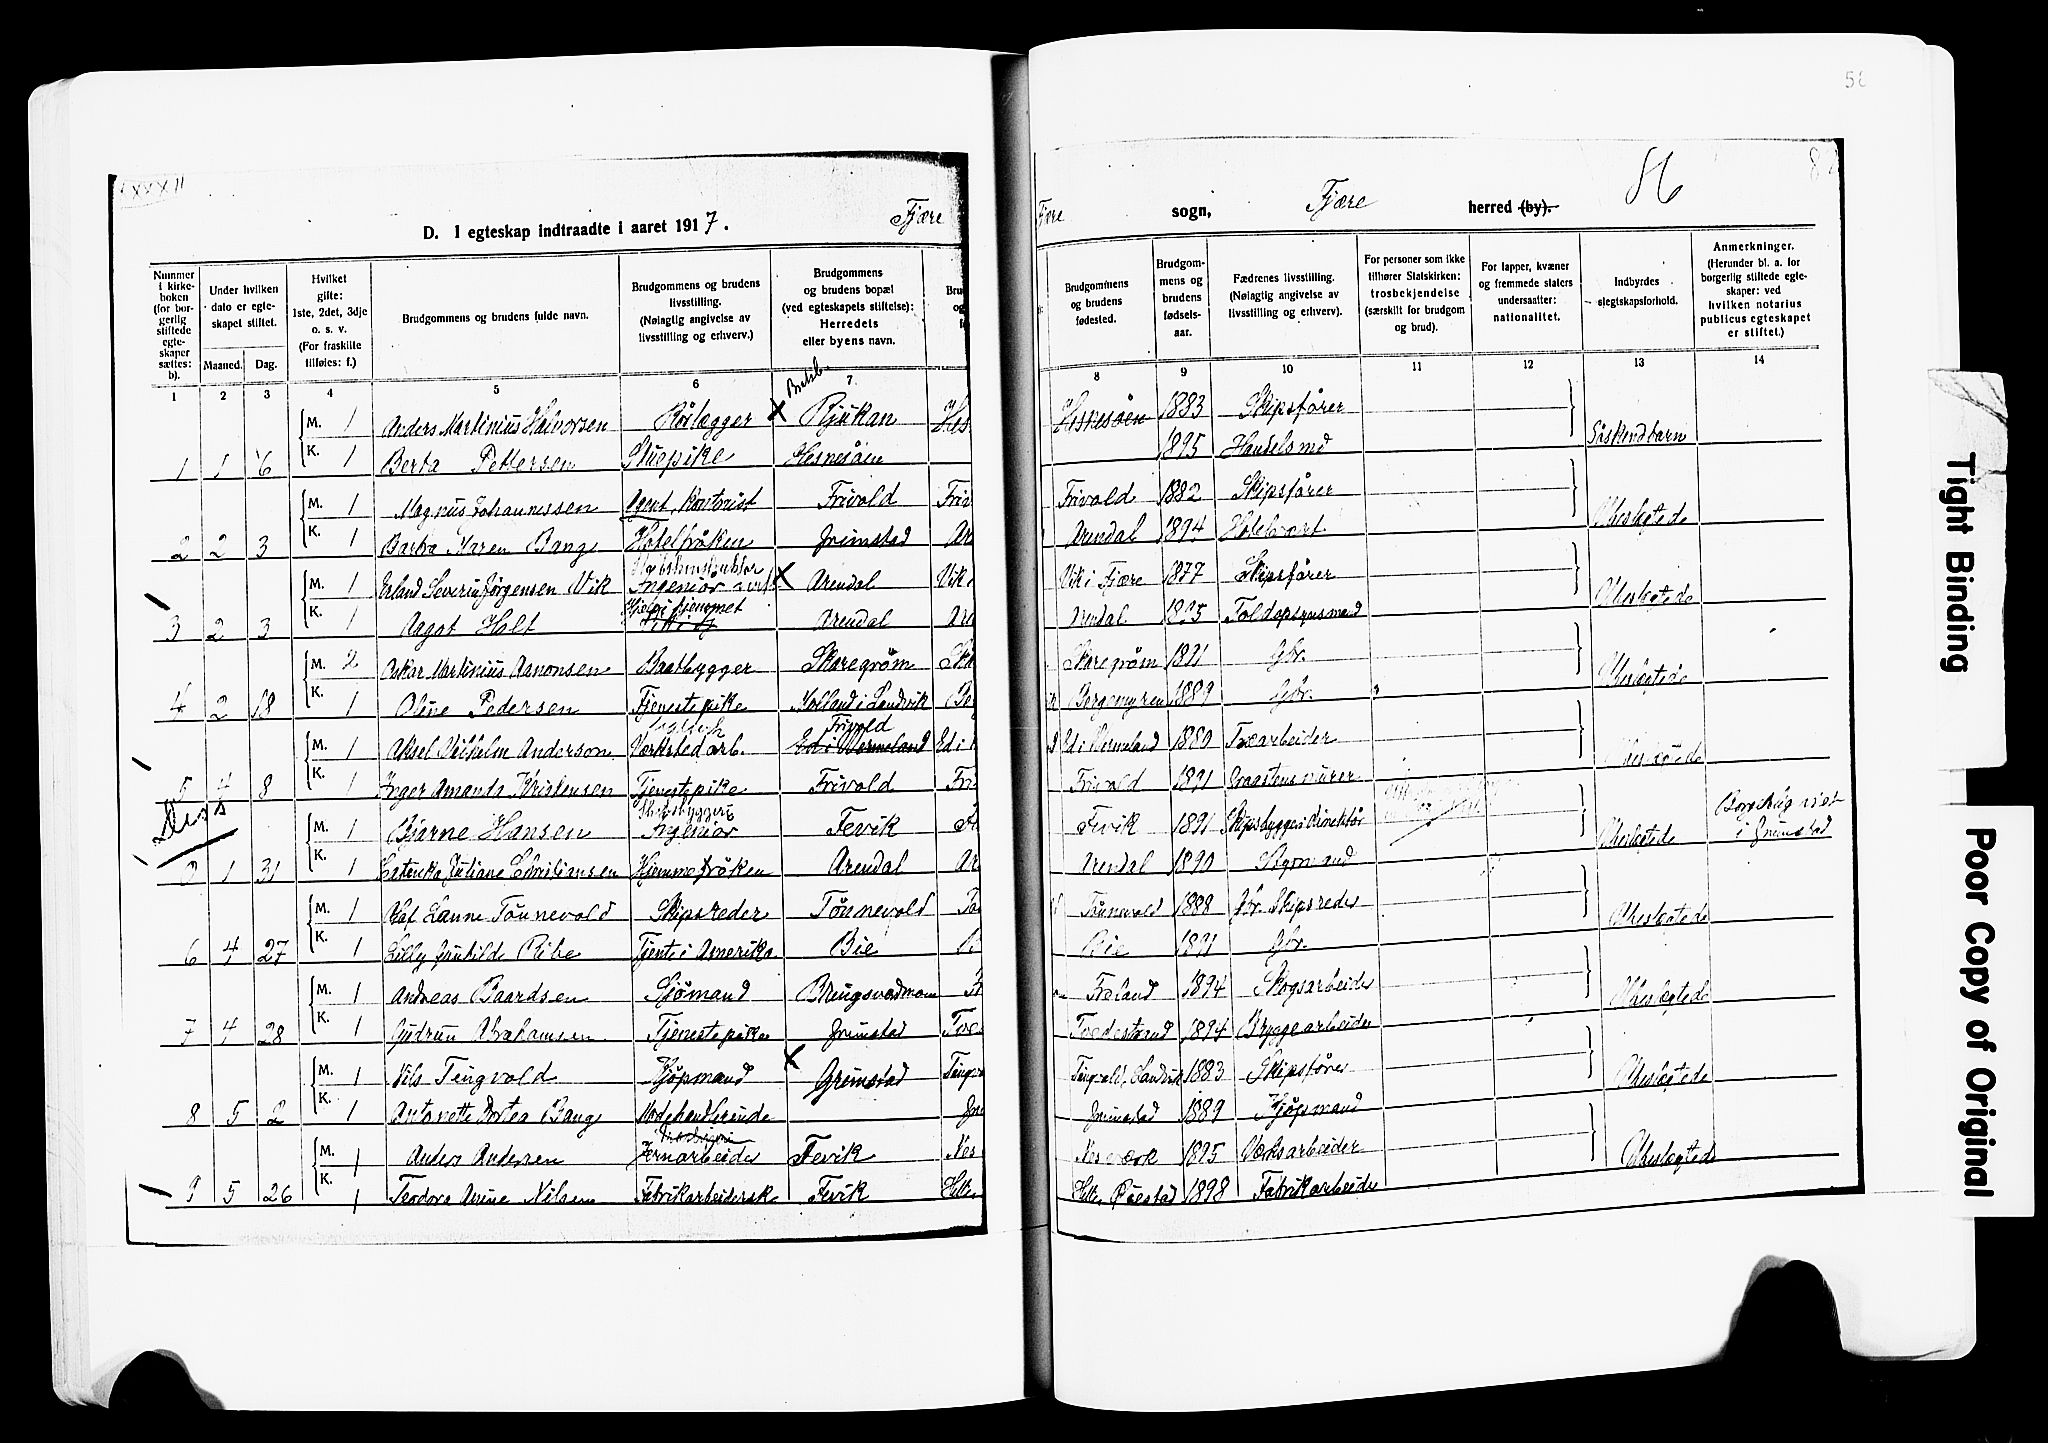 D. I egteskap indtraadte i aaret 1917. Fjære
Fjære sogn, Fjære herred (by). 86
Nummer i kirkeboken (for borgerlig stiftede egteskaper sættes: b).
Under hvilken dato er egteskapet stiftet.
Maaned. Dag.
Hvilket gifte: 1ste, 2det, 3dje o. s. v. (For fraskilte tilføies: f.)
Brudgommens og brudens fulde navn.
Brudgommens og brudens livsstilling. (Nøiagtig angivelse av livsstilling og erhverv.)
Brudgommens og brudens bopæl (ved egteskapets stiftelse): Herredets eller byens navn.
Brudgommens og brudens fødested.
Brudgommens og brudens fødselsaar.
Fædrenes livsstilling. (Nøiagtig angivelse av livsstilling og erhverv).
For personer som ikke tilhører Statskirken: trosbekjendelse (særskilt for brudgom og brud).
For lapper, kvæner og fremmede staters undersaatter: nationalitet.
Indbyrdes slegtskapsforhold.
Anmerkninger. (Herunder bl. a. for borgerlig stiftede egteskaper: ved hvilken notarius publicus egteskapet er stiftet.)
1 2 3 4 5 6 7 8 9 10 11 12 13 14
M. 1 Anders Martinius Halvorsen Rörlægger X Rjukan Hesnesöen 1883 Skipsförer
1 1 6 K. 1 Berta Pettersen Stuepike Hesnesöen 1895 Handelsmd Söskendbarn
M. 1 Magnus Johannessen Agent, Kontorist Frivold Frivold 1882 Skipsförer
2 2 3 K. 1 Barbra Maren Bang Hotelfröken Grimstad Arendal 1894 Hotelvært Ubeslegtede
M. 1 Erland Severin Jörgensen Vik Ingeniör X Arendal Vik i Fjære 1877 Skipsförer
3 2 3 K. 1 Aagot Holt Hjelp i hjemmet Arendal Arendal 1895 Toldopsynsmand Ubeslegtede
M. 2 Oskar Martinius Aanonsen Baatbygger Skaregröm Skaregröm 1891 Gbr.
4 2 18 K. 1 Oline Pedersen Tjenestepike Molland i Landvik Bergemyren 1889 Gbr. Ubeslegtede
M. 1 Aksel Vilhelm Anderson Verkstedarb. Frivold Ed i Vermeland Ed i Vermeland 1880 Træarbeider
5 4 8 K. 1 Inger Amanda Kristensen Tjenestepike Frivold Frivold 1891 Graastensmurer Ubeslegtede
M. 1 Bjarne Hansen Skibsbyggeri Ingeniör Fevik Fevik 1891 Skipsbyggeridirektör Borgerlig viet i Grimstad
1 31 K. 1 Catinka Juliane Christiansen Hjemmefröken Arendal Arendal 1890 Ubeslegtede
M. 1 Olaf Lanne Tönnevold Skipsreder Tönnevold Tönnevold 1888 Gbr. Skipsreder
6 4 27 K. 1 Lilly Gunhilde Ribe Tjent i Amerika Bie Bie 1891 Gbr. Ubeslegtede
M. 1 Andreas Baardsen Sjömand Bringsvedmoen Froland 1894 Skogsarbeider
7 4 28 K. 1 Gudrun Abrahamsen Tjenestepike Grimstad Tvedestrand 1894 Bryggearbeider Ubeslegtede
M. 1 Nils Tingvold Kjöpmand X Grimstad Tingvold, Landvik 1883 Skipsförer
8 5 2 K. 1 Antonette Dortea Bang Modehandlerinde Grimstad 1889 Kjöpmand Ubeslegtede
M. 1 Anders Andersen Jernarbeider Fevik Nes verk 1895 Verksarbeider
9 5 26 K. 1 Teodora Arine Nilsen Fabrikarbeiderske Fevik Öiestad 1898 Fabrikarbeider Ubeslegtede
Tight Binding
Poor Copy of Original